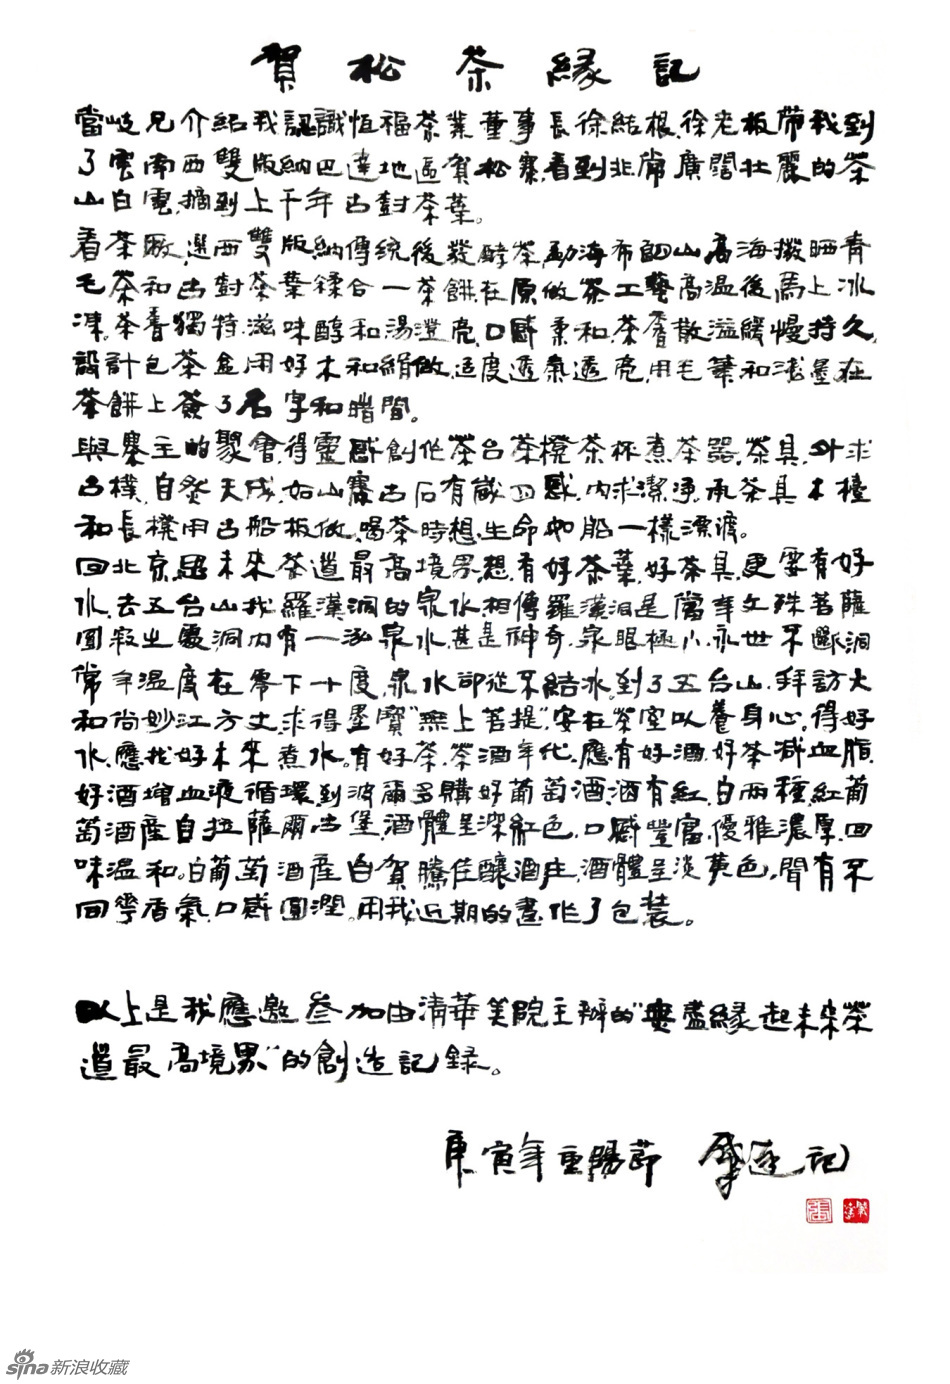 賀松茶緣記
當岐兄介紹我認識恆福茶業董事長徐結根,徐老板帶我到
了雲南西雙版納巴達地區賀松寨,看到非常廣闊壯麗的茶
山白雲,摘到上千年古樹茶葉。
看茶廠,選西雙版納傳統後發酵茶,勐海布朗山高海拔晒青
毛茶和古樹茶葉揉合一茶餅在原做茶工藝高溫後馬上冰
凍。茶香獨特滋味醇和湯澄亮,口感柔和,茶香散溢緩慢持久,
設計包茶盒用好木和絹做,适度透氣透亮,用毛筆和淺墨在
茶餅上簽了名字和時間。
與寨主的聚會,得靈感創作茶台茶櫈茶杯煮茶器,茶具,外求
古樸,自然天成,如山寨古石有凹感,內求潔淨,承茶具木檯
和長櫈用古船板做,喝茶時想,生命如船一樣漂渡。
回北京,思未來茶道最高境界,想,有好茶葉,好茶具,更要有好
水,去五台山找羅漢洞的泉水,相傳羅漢洞是當年文殊菩薩
圓寂之處,洞內有一泓泉水,甚是神奇,泉眼極小,永世不斷,洞
常年溫度在零下十度,泉水卻從不結冰,到了五台山,拜訪大
和尚妙江方丈,求得墨寶“無上菩提”,安在茶室以養身心,得好
水,應找好木來煮水。有好茶,茶酒年代,應有好酒,好茶減血脂,
好酒增血液循環,到波爾多購好葡萄酒,酒有紅,白兩種,紅葡
萄酒產自拉薩爾古堡,酒體呈深紅色,口感豐富,優雅濃厚,回
味溫和。白葡萄酒產自賀騰佳釀酒庄,酒體呈淡黃色,聞有不
同零香氣,口感圓潤。用我近期的畫作了包裝。
以上是我應邀參加由清華美院主辦的“與盛緣起未來茶
道最高境界”的創造記録。
庚寅年重陽節 記
sina新浪收藏